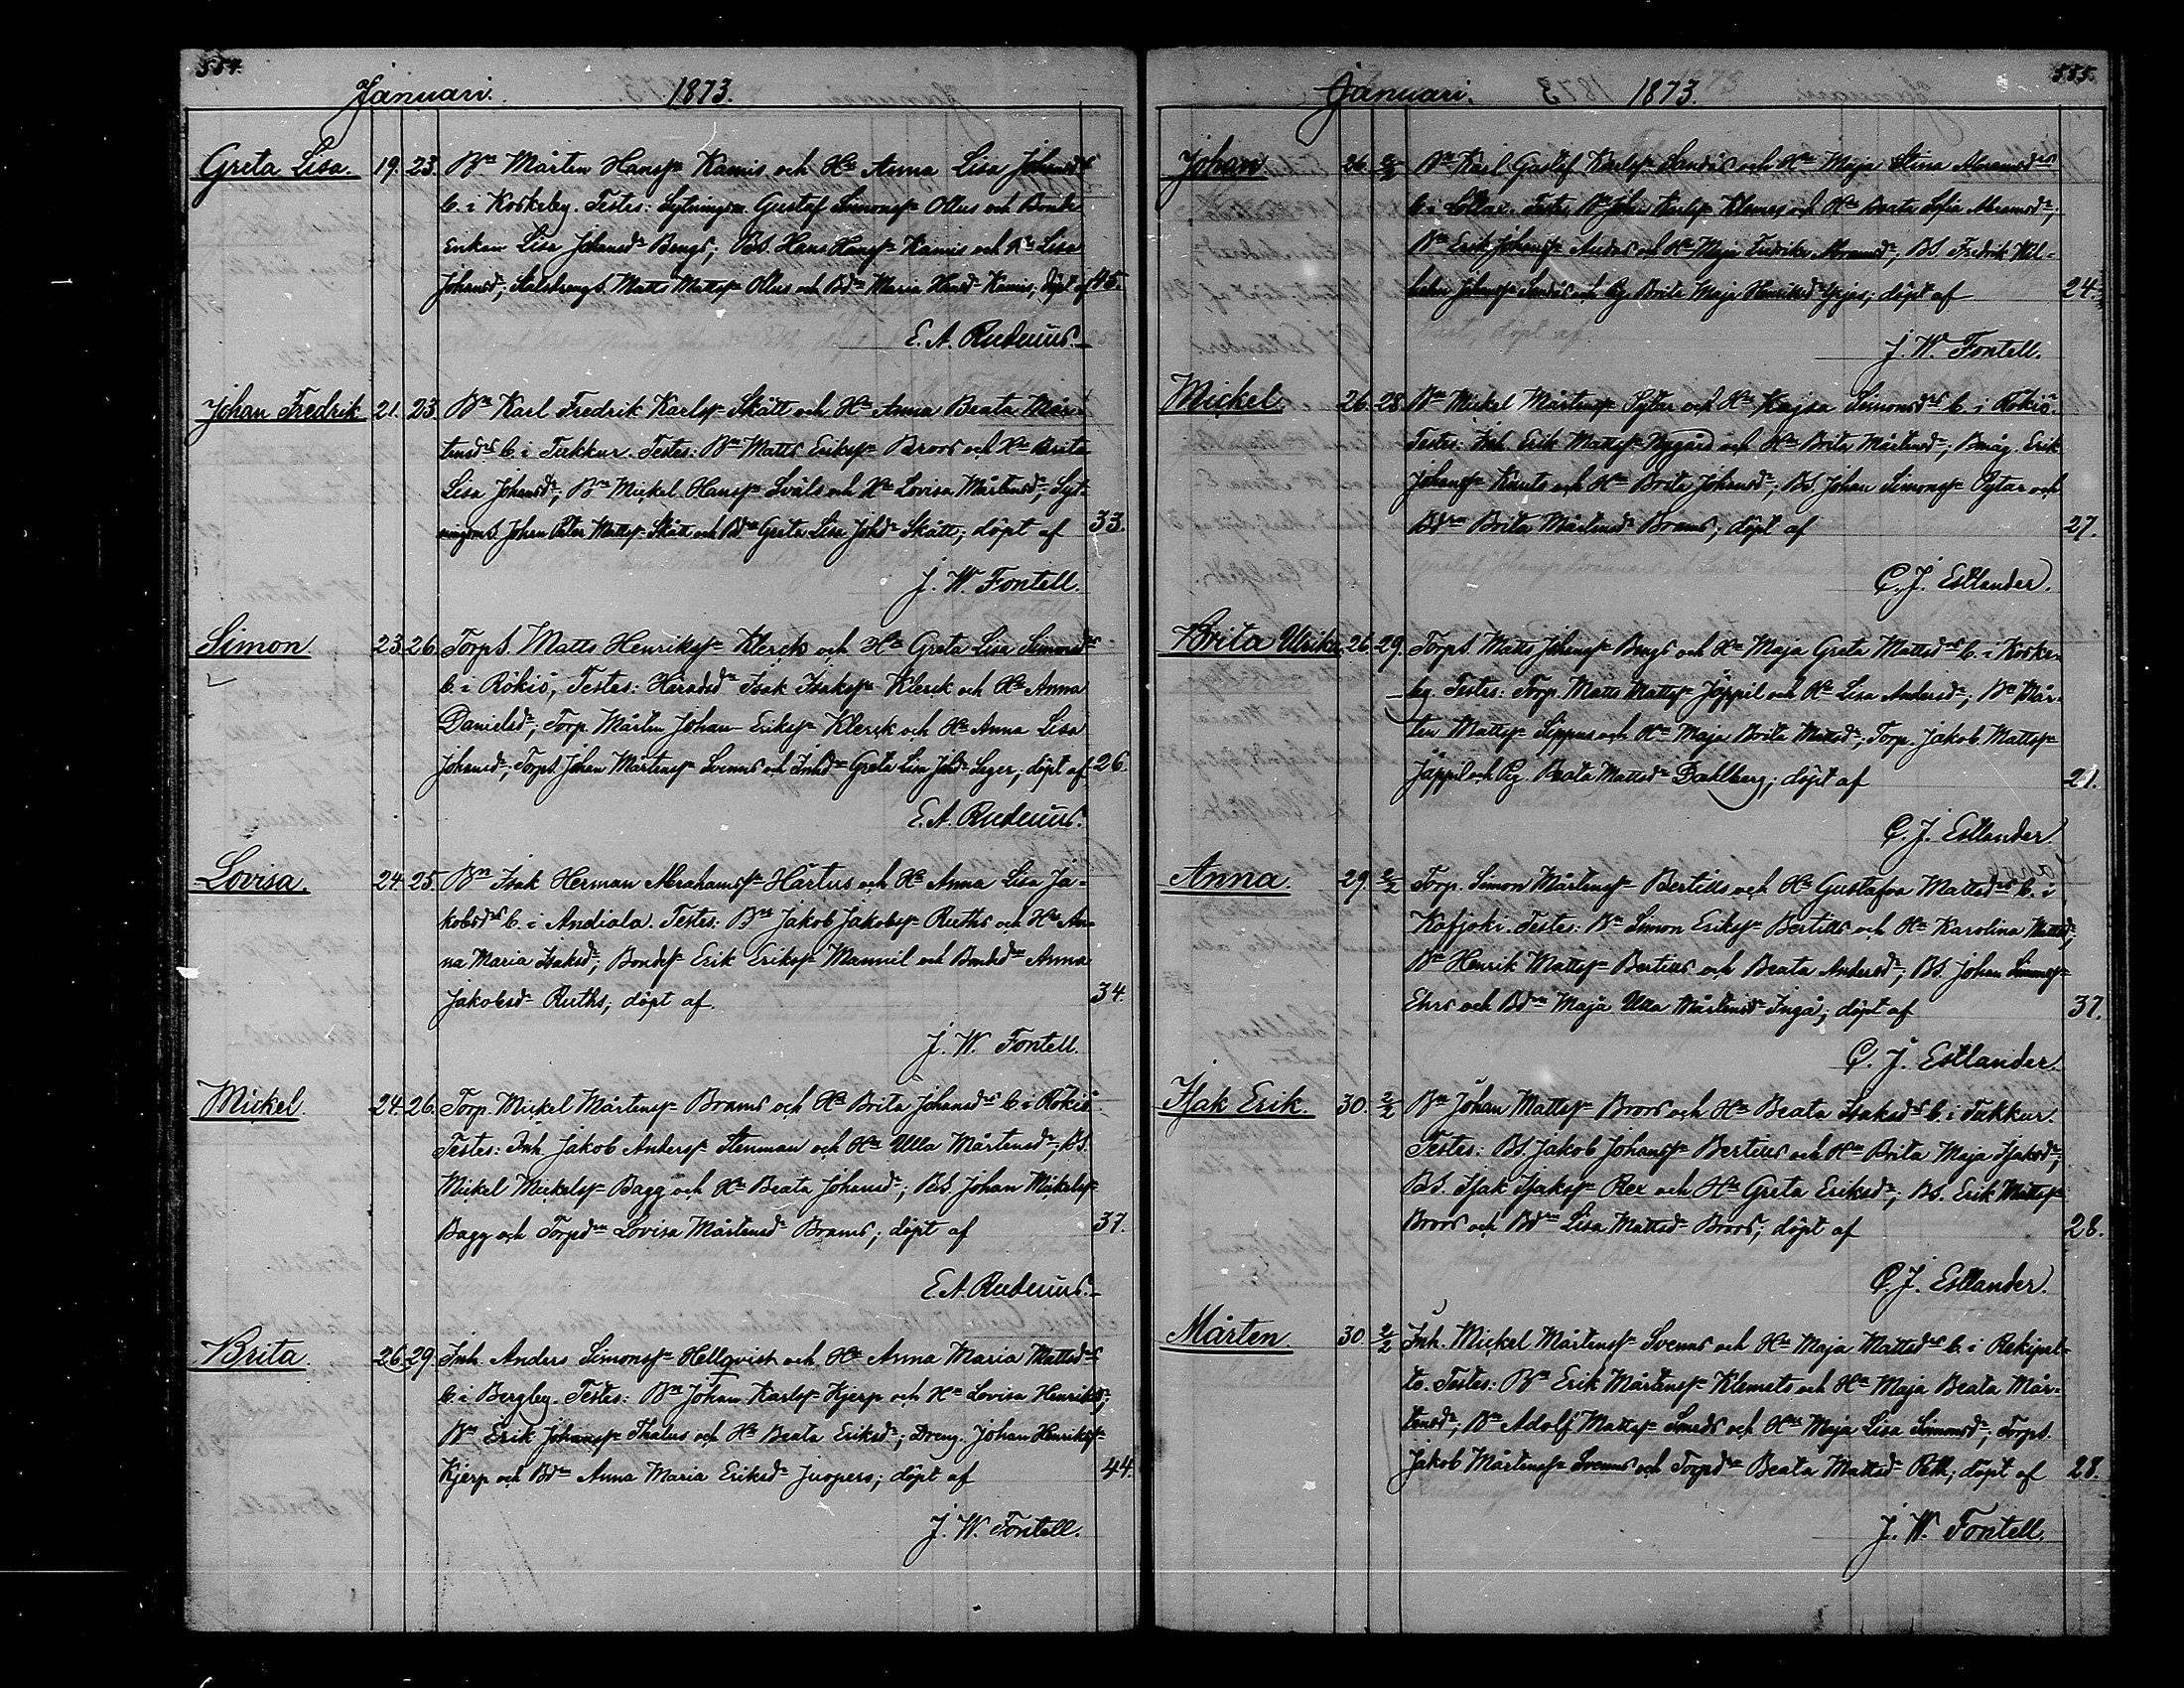 554.
Januari. 1873.
Greta Lisa. 19. 23. Bn Mårten Hansson Kamis och Hu Anna Lisa Johansdr
b. i Koskeby. Testes: Sytningsm. Gustaf Simonsson Ollus och Bonde-
enkan Lisa Johansdr Bengs; BS. Hans Hansson Kamis och Hu Lisa
Johansdr; Matts Mattsson Ollus och Bdn Maria Hansdr Kamis; döpt af 45.
E. A. Rudenius.
Johan Fredrik 21. 23. Bn Karl Fredrik Karlsson Skått och Hu Anna Beata Mår-
tensdr b. i Tukkur. Testes: Bn Matts Eriksson Broos och Hu Brita
Lisa Johansdr; Bn Mickel Hansson Svåls och Hu Lovisa Mårtensdr; Syt-
ningsmS Johan Peter Mattsson Skått och Bdn Greta Lisa Johdr Skått; döpt af 33.
J. W. Fontell.
Simon 23. 26. TorpS. Matts Henriksson Klerck och Hu Greta Lisa Simonsdr
b. i Rökiö, Testes: Isak Isaksson Klerck och Hu Anna
Danielsdr; Torp. Mårten Johan Eriksson Klerck och Hu Anna Lisa
Johansdr; TorpS. Johan Mårtensson Svenns och Greta Lisa Johdr Seger; döpt af 26.
E. A. Rudenius.
Lovisa. 24. 25. Bn Isak Herman Abrahamsson Hartus och Hu Anna Lisa Ja-
kobsdr b. i Andiala. Testes: Bn Jakob Jakobsson Ruths och Hu An-
na Maria Isaksdr; Bondes Erik Eriksson Manniel och Bondedn Anna
Jakobsdr Ruths; döpt af 34.
J. W. Fontell.
Mickel 24. 26. Torp. Mickel Mårtensson Brams och Hu Brita Johansdr b. i Rökiö
Testes: Inh. Jakob Andersson Stenman och Hu Ulla Mårtensdr; BS.
Mickel Mickelsson Bagg och Hu Beata Johansdr; BS. Johan Mickelsson
Bagg och Torpdn Lovisa Mårtensdr Brams; döpt af 37.
E. A. Rudenius.
Brita. 26. 29. Inh. Anders Simonsson Hellqvist och Hu Anna Maria Mattsdr
b. i Bergby. Testes: Bn Johan Karlsson Kjerp och Hu Lovisa Henriksdr;
Bn Erik Johansson Thalus och Hu Beata Eriksdr; Dreng. Johan Henriksson
Kjerp och Bdn Anna Maria Eriksdr Juopers; döpt af 44.
J. W. Fontell.
555.
Januari. 1873.
Johan 26. 2/2 Bn Karl Gustaf Karlsson Sandås och Hu Maja Stina Abramsdr
b. i Lollax. Testes Bn Johan Karlsson Klemes och Hu Beata Sofia Abramsdr;
Bn Erik Johansson och Hu Maja Fredrika Abramsdr; BS. Fredrik Wil-
helm Johansson Sandås och Pig. Brita Maja Henriksdr; döpt af 24.
J. W. Fontell.
Mickel 26. 28. Bn Mickel Mårtensson Pytar och Hu Kajsa Simonsdr b. i Rökiö.
Testes: Inh. Erik Mattsson Nygård och Hu Brita Mårtensdr; Bmåg. Erik
Johansson Knuts och Hu Brita Johansdr; BS. Johan Simonsson Pytar och
Bdn Brita Mårtensdr Brams; döpt af 27.
C. J. Estlander.
Brita Ulrika 26. 29. TorpS. Matts Johansson Bengs och Hu Maja Greta Mattsdr b. i Koske-
by. Testes: Torp. Matts Mattsson Jåppil och Hu Lisa Andersdr; Bn Mår-
ten Mattsson Sippus och Hu Maja Brita Mattsdr; Torp. Jakob Mattsson
Jåppil och Pig. Beata Mattsdr Dahlberg; döpt af 21.
C. J. Estlander.
Anna. 29. 2/2 Torp. Simon Mårtensson Bertills och Hu Gustafva Mattsdr b. i
Kafjoki. Testes: Bn Simon Eriksson Bertills och Hu Karolina Mattsdr;
Bn Henrik Mattsson Bertills och Beata Andersdr; BS. Johan Simonsson
Ehrs och Bdn Maja Ulla Mårtensdr Inga; döpt af 37.
C. J. Estlander.
Isak Erik. 30. 2/2 Bn Johan Mattsson Broos och Hu Beata Isaksdr b. i Tukkur.
Testes: BS. Jakob Johansson Bertills och Hu Brita Maja Isaksdr;
BS. Isak Isaksson Rex och Hu Greta Eriksdr; BS. Erik Mattsson
Broos och Bdn Lisa Mattsdr Broos; döpt af 28.
C. J. Estlander.
Mårten 30. 2/2 Inh. Mickel Mårtensson Svenns och Hu Maja Mattsdr b. i Rekipel-
to. Testes: Bn Erik Mårtensson Klemets och Hu Maja Beata Mår-
tensdr; Bn Adolf Mattsson Smeds och Hu Maja Lisa Simonsdr; TorpS.
Jakob Mårtensson Svenns och Torpdn Beata Mattsdr Peth; döpt af 28.
J. W. Fontell.